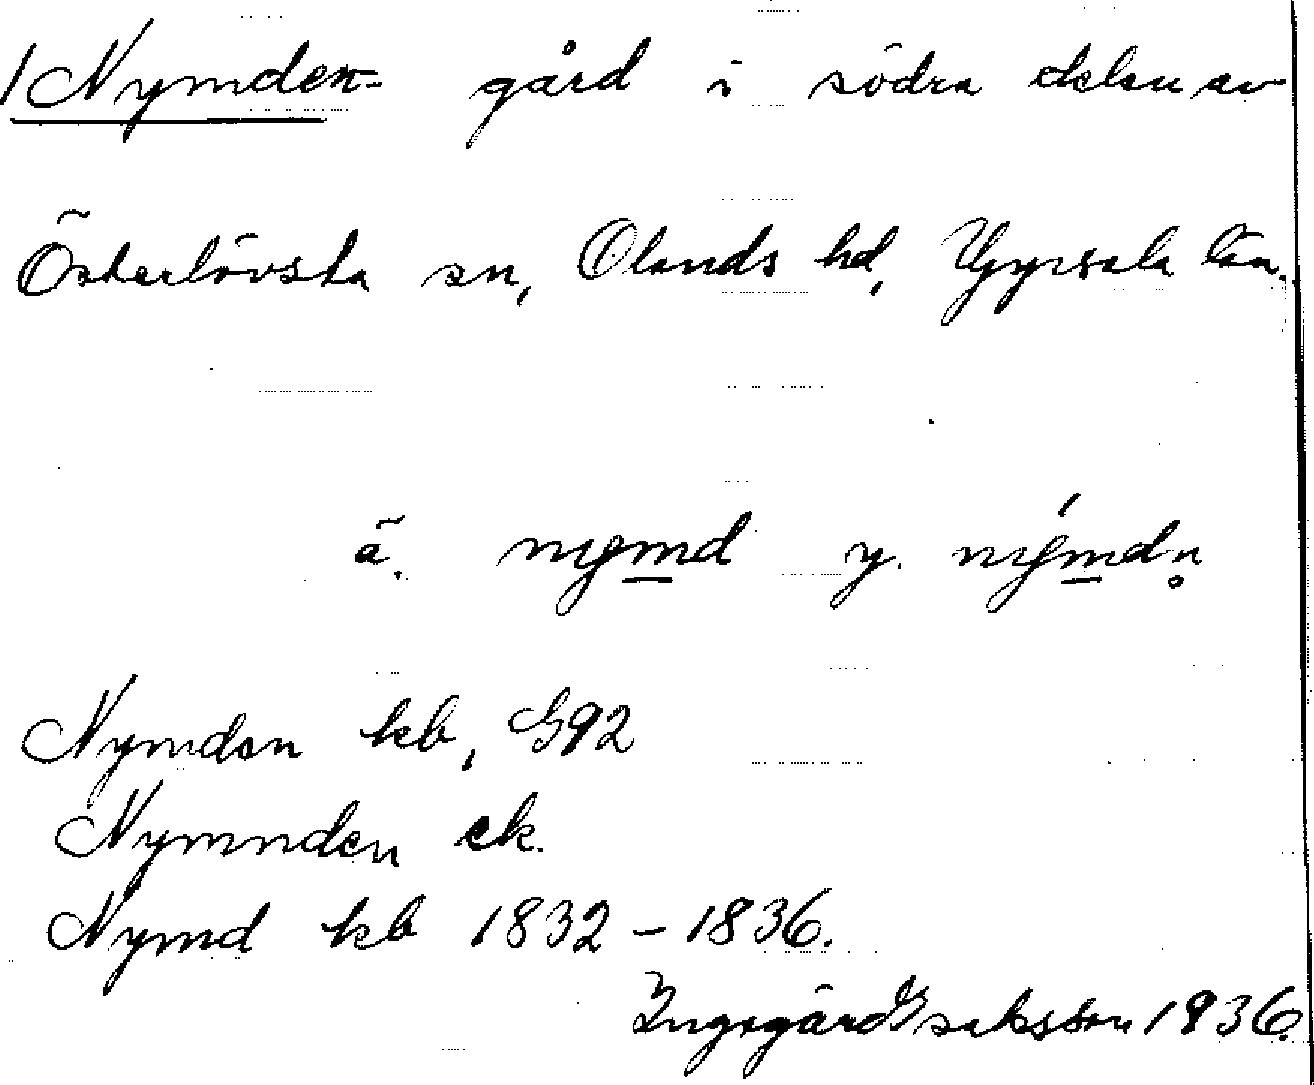 /Nymden- gård i södra delen av
Österlövsta sn, Olands hd, Uppsala län.
ä. nymd y. nýmdn̥
Nymden kb, G92
Nymnden ek.
Nymd kb 1832-1836.
Ingegärd Isaksson 1936.